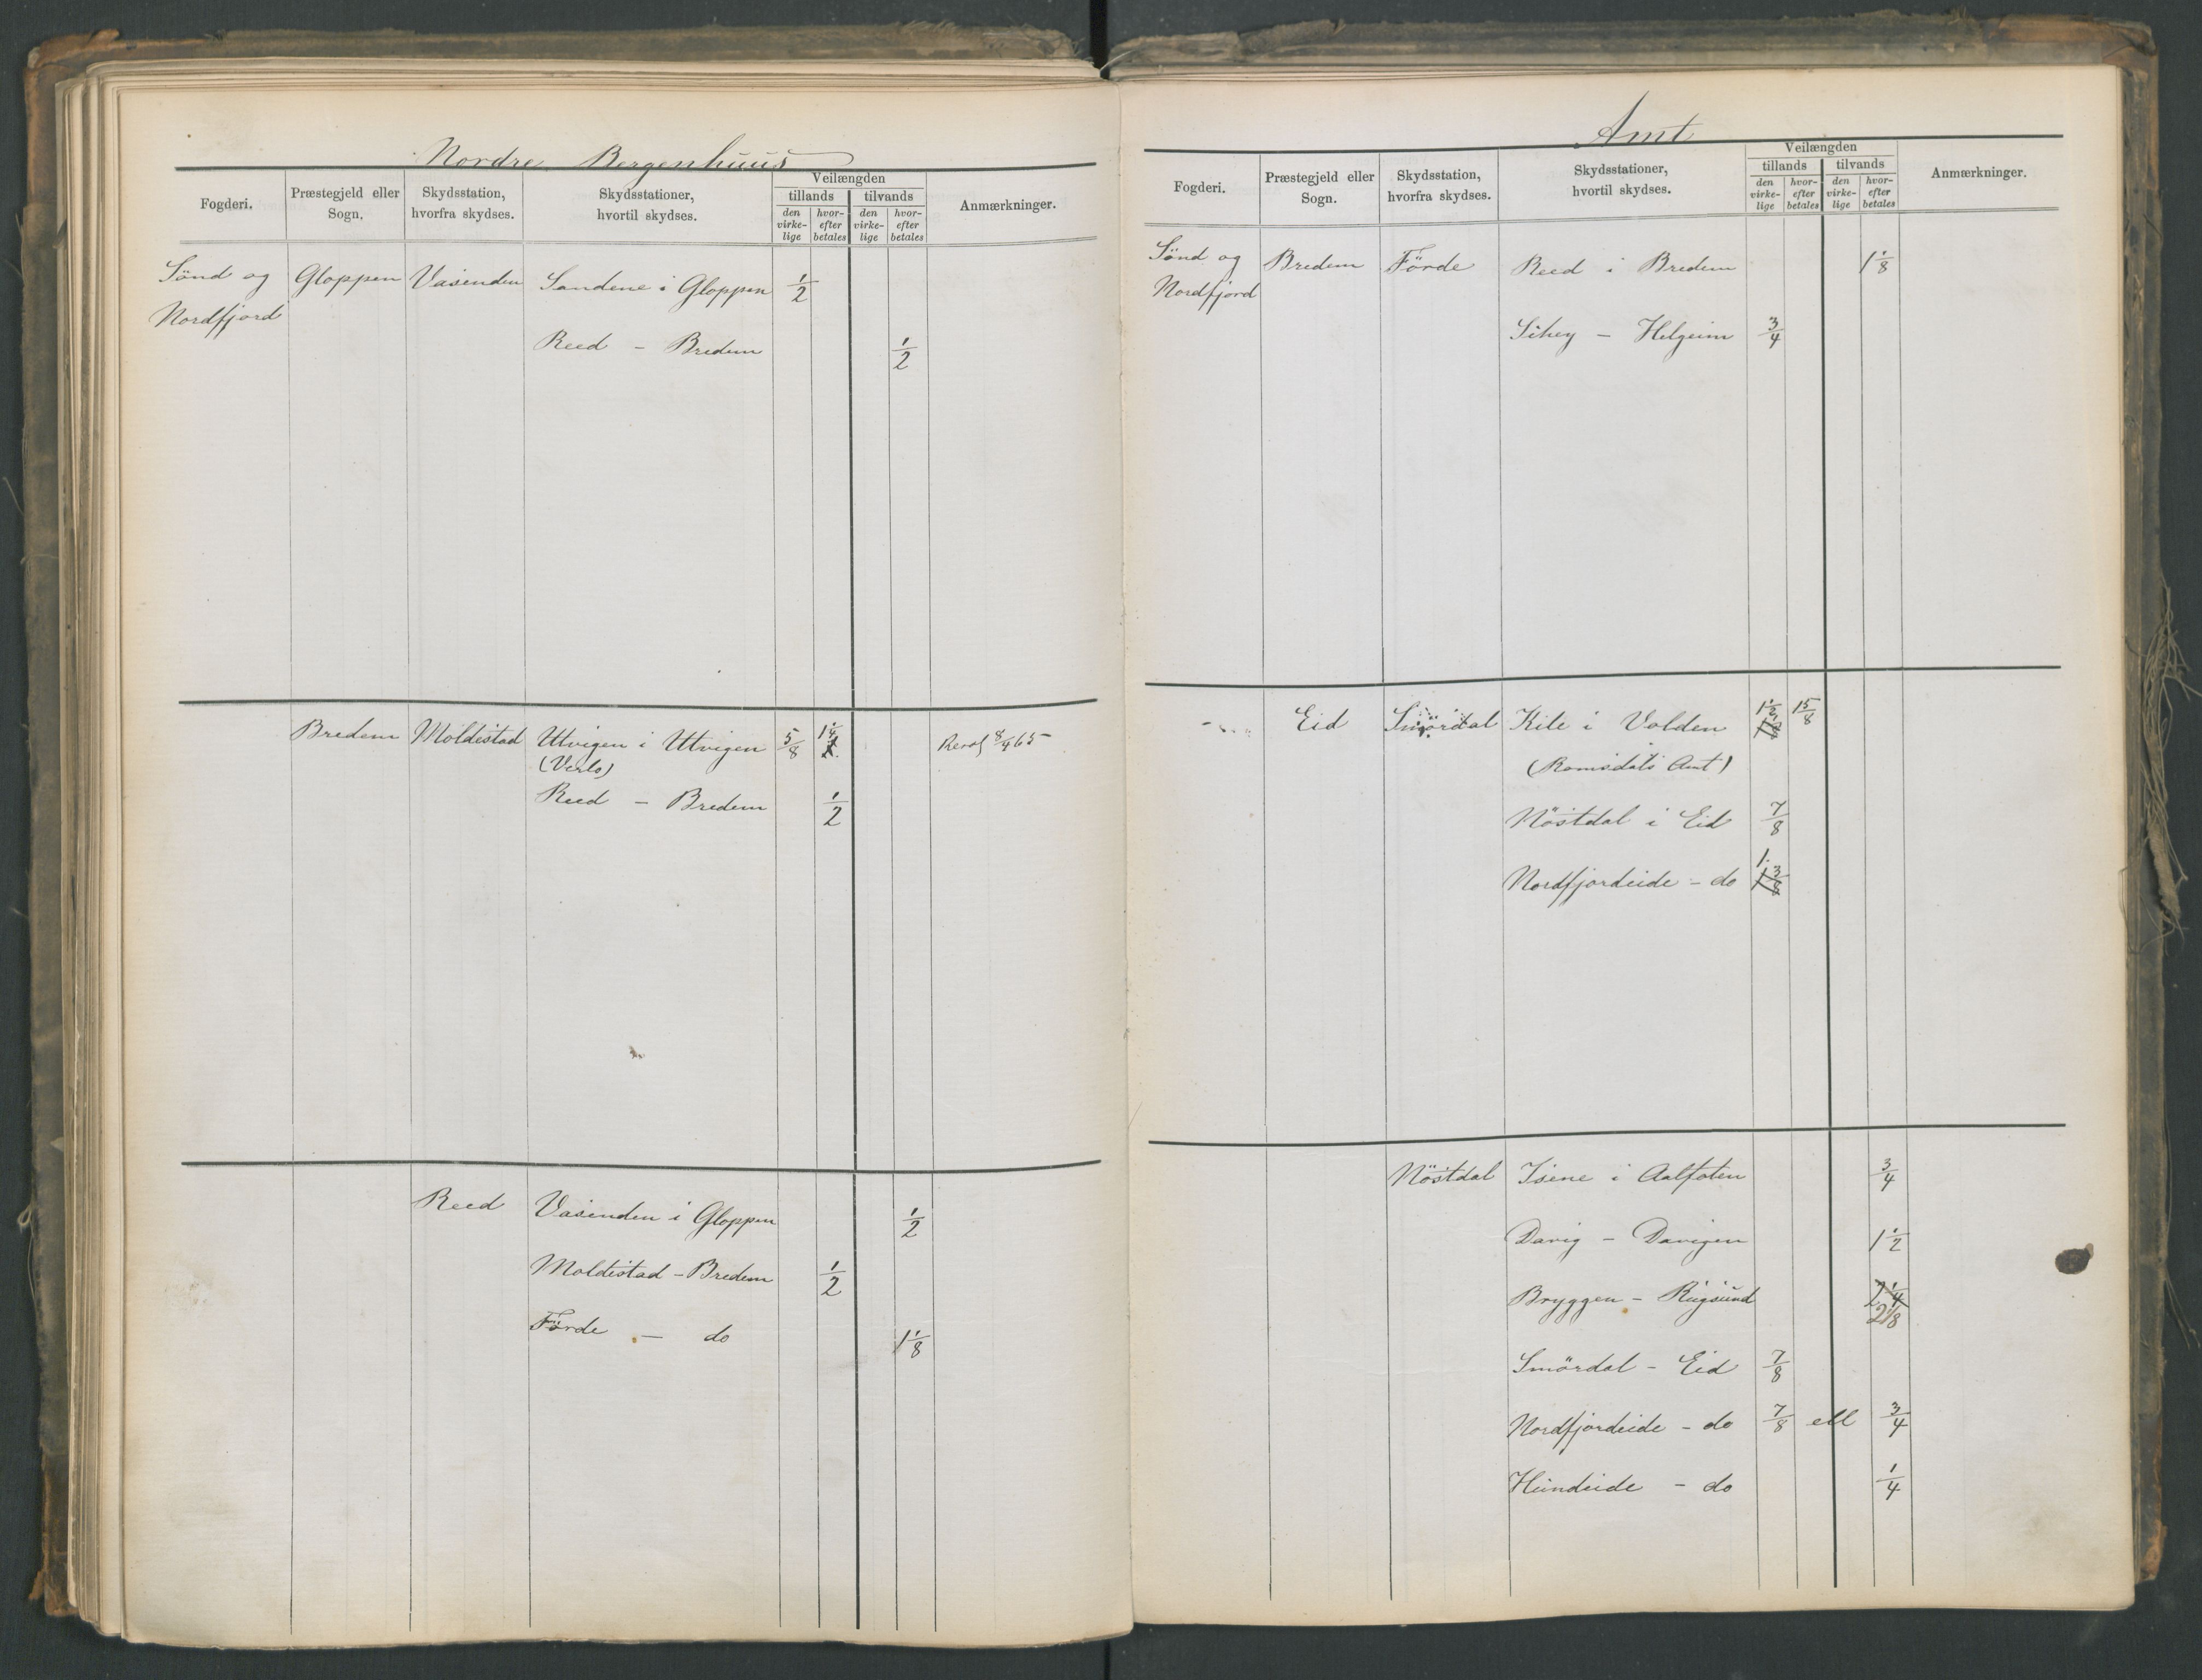 Nordre Bergenhuus
Fogderi. Præstegjeld eller Sogn. Skydsstation, hvorfra skydses. Skydsstationer, hvortil skydses. Veilængden tillands tilvands den virkelige hvorefter betales den virkelige hvorefter betales Anmærkninger.
Sönd og Gloppen Vasenden Sandene i Gloppen 1/2
Nordfjord
Reed - Bredem 1/2
Bredem Moldestad Utvigen i Utvigen 5/8 1 1/4
(Verlo)
Reed - Bredem 1/2
Reed Vasenden i Gloppen 1/2
Moldestad - Bredem 1/2
Förde - do 1 1/8
Amt
Fogderi. Præstegjeld eller Sogn. Skydsstation, hvorfra skydses. Skydsstationer, hvortil skydses. Veilængden tillands tilvands den virkelige hvorefter betales den virkelige hvorefter betales Anmærkninger.
Sönd og Bredem Förde Reed i Bredem 1 1/8
Nordfjord
- Helgeim 3/4
Eid Smördal Kile i Volden 1 5/8
(Romsdals Amt)
Nöstdal i Eid 7/8
Nordfjordeide - do
Nöstdal Isene i Aalfoten 3/4
Davig - Davigen 1 1/2
Bryggen - Rugsund 2 1/4
2 1/8
Smördal - Eid 7/8
Nordfjordeide - do 7/8 ell 3/4
Hundeide - do 1/4